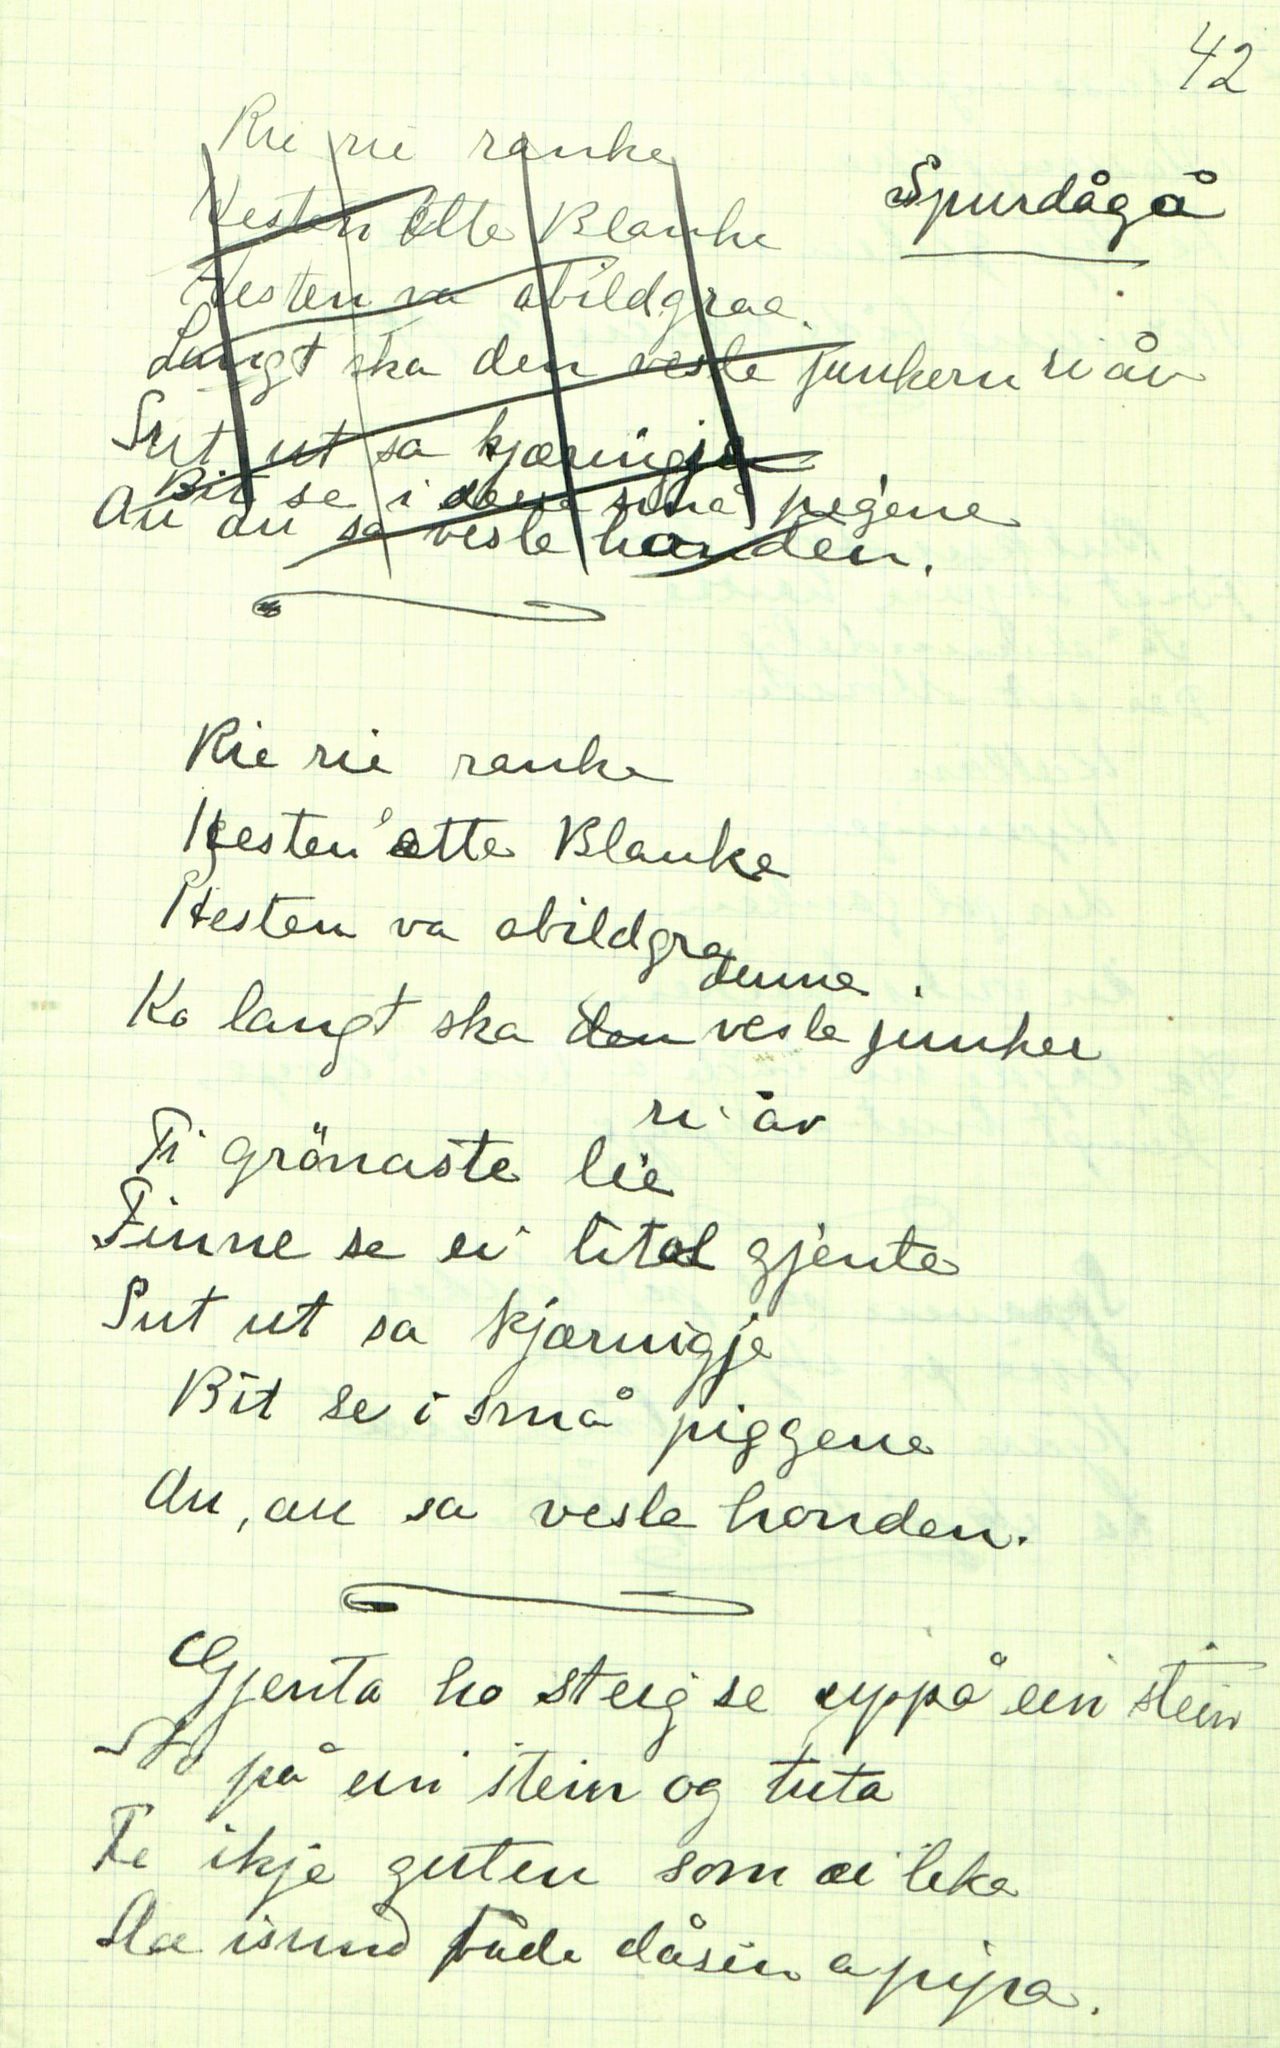 42
Rie rie ranke
Spurdågå
Hesten ette Blanke
Hesten va abildgraa.
Langt ska den vesle junkern ri åv
Sut ut sa kjærnigje
Bit se i små pigene
Au au sa vesle handen.
Rie rie ranke
Hesten ette Blanke
Hesten va abildgra
denne
Ko langt ska den vesle junker
ri åv
Ti grönaste lie
Finne se ei lital gjente
Sut ut sa kjærnigje
Bit se i små piggene
Au, au sa vesle honden.
Gjenta ho steig se uppå ein stein
Sto på ein stein og tuta
Te ikje guten som ei leka
Sla isund både dåsin a pipa.